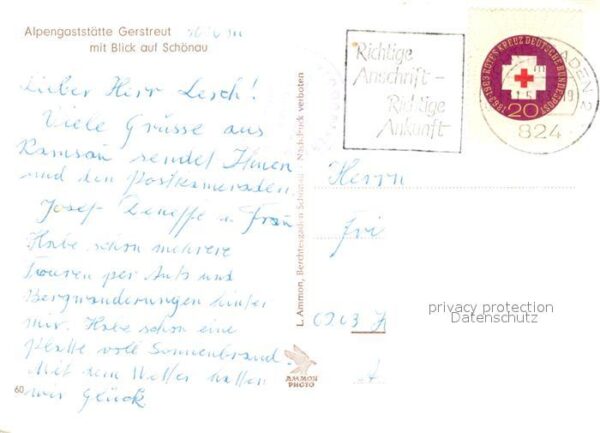 Alpengaststätte Gerstreut
mit Blick auf Schönau
Lieber Herr Lesch!
Viele Grüsse aus
Ramsau sendet Ihnen
und den Postkameraden
Josef u Frau
Habe schon mehrere
Touren per Auto und
Bergwanderungen hinter
mir. Habe schon eine
Platte voll Sonnenbrand.
Mit dem Wetter hatten
wir Glück
60
L. Ammon, Berchtesgaden-Schönau - Nachdruck verboten
AMMON
PHOTO
Richtige
Anschrift –
Richtige
Ankunft
1863-1963 ROTES KREUZ DEUTSCHE BUNDESPOST
20
ADEN 2
824
Herrn
Fri
privacy protection
Datenschutz